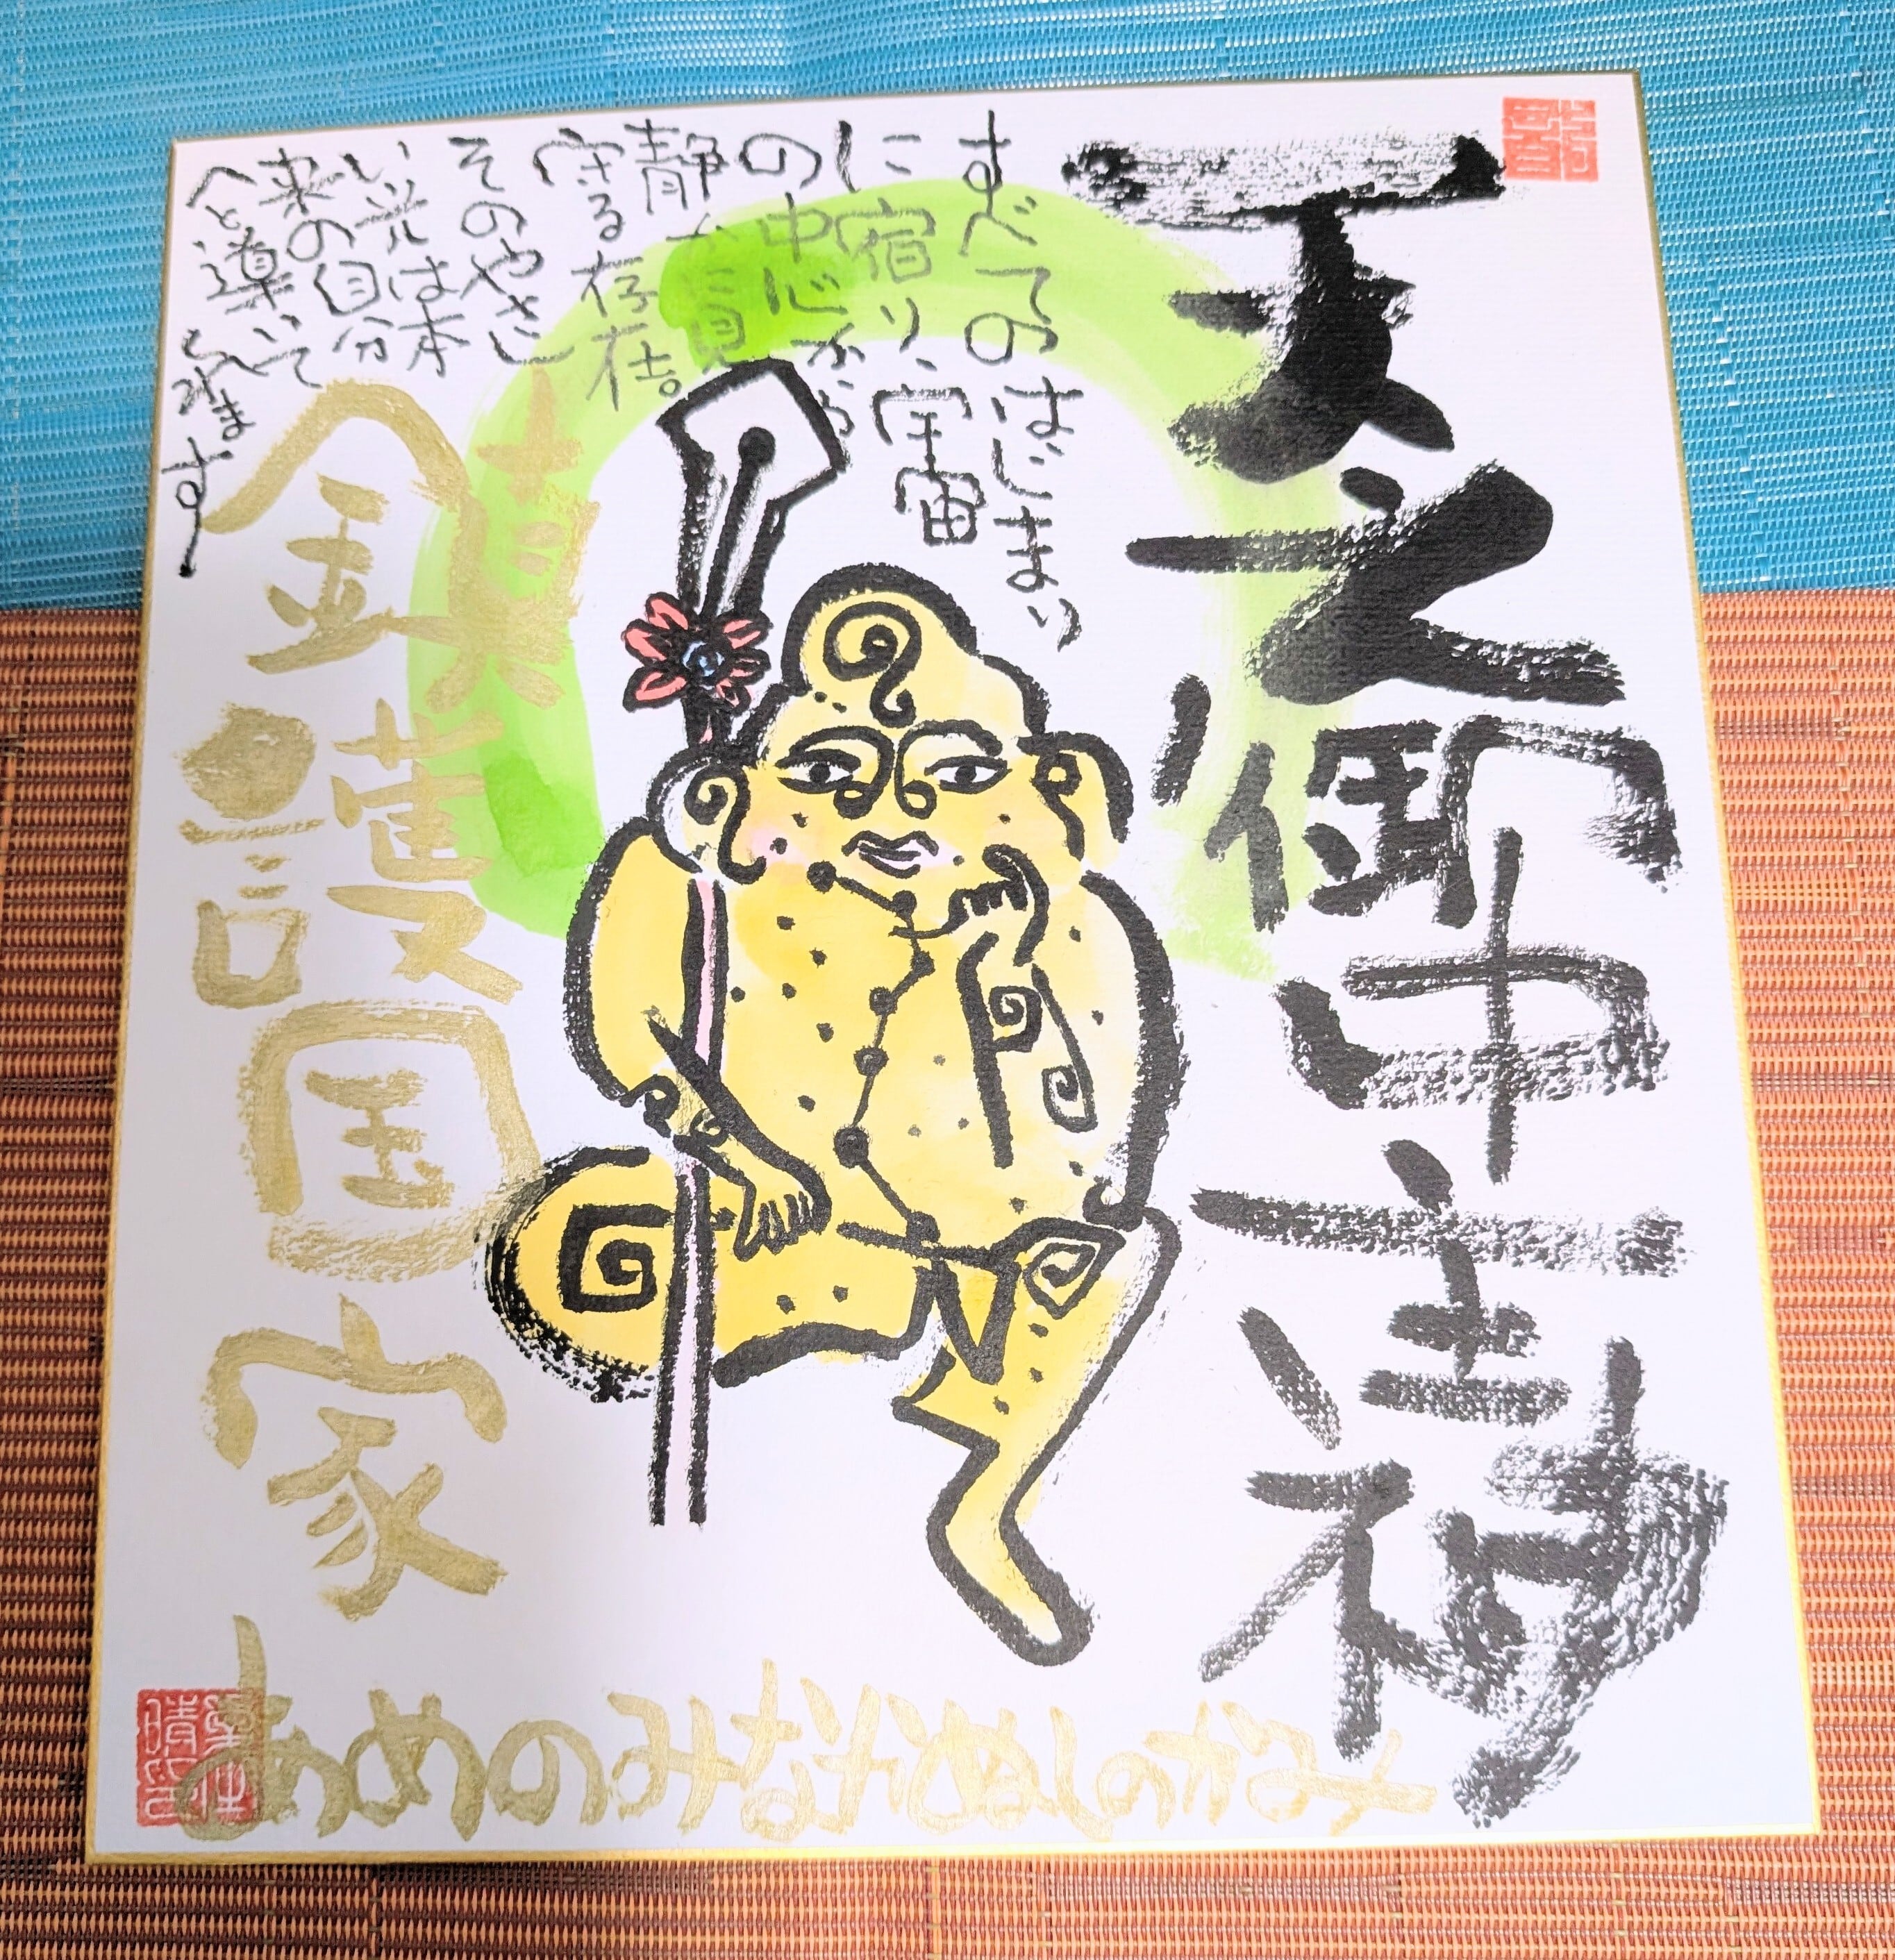 天之御中主神
すべてのはじまり
に宿り、宇宙
の中心から
静かに見
守る存在。
そのやさし
い光は本
来の自分
へと導いて
くれます
鎮護国家
あめのみなかぬしのかみ